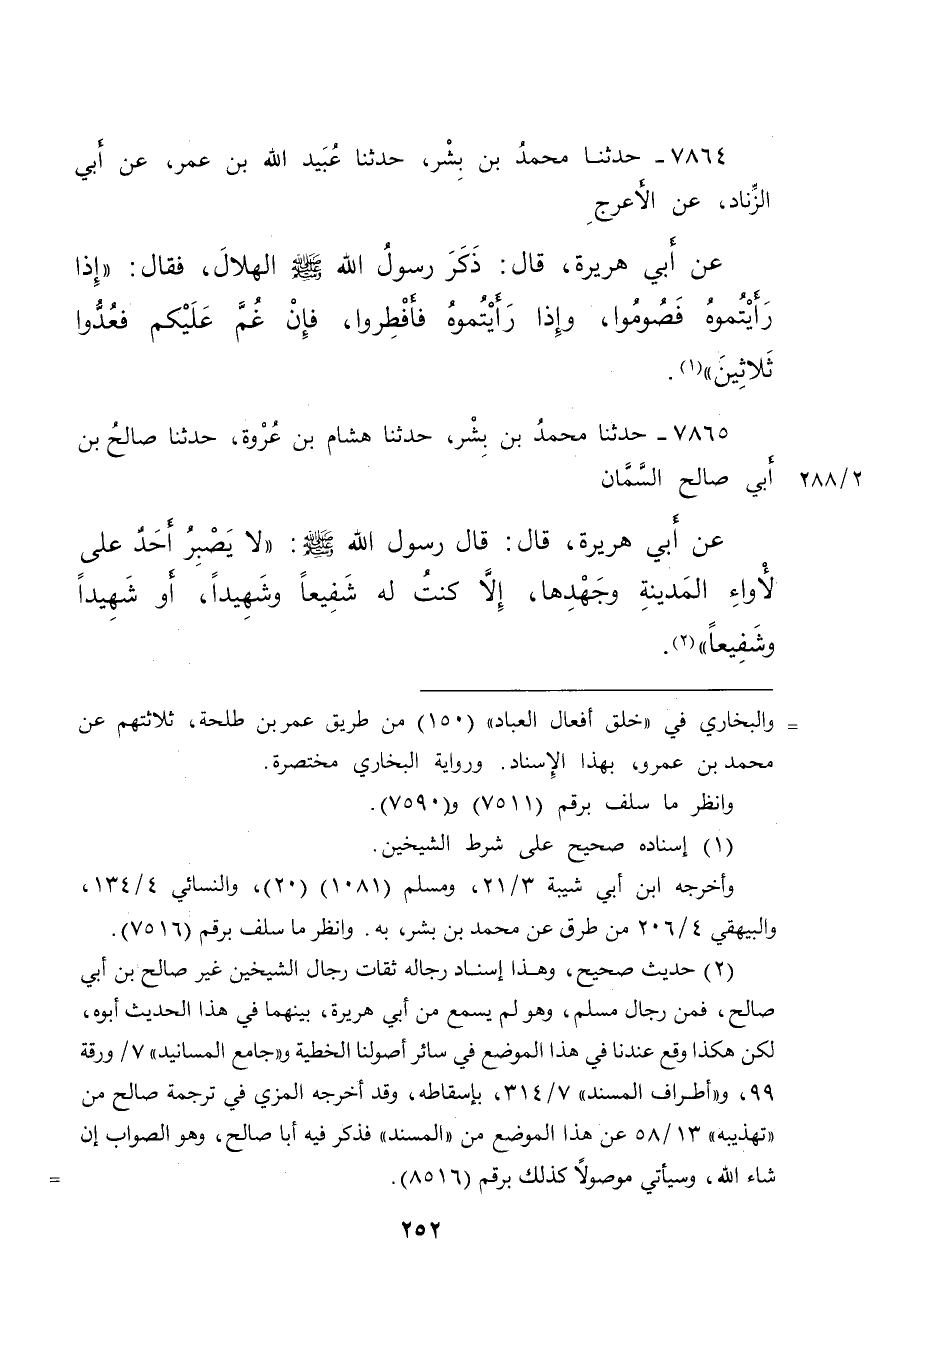 ٧٨٦٤ ـ حدثنا محمدُ بن بِشْر، حدثنا عُبَيد الله بن عمر، عن أَبي
الزِّناد، عن الأَعرجِ
عن أَبي هريرة، قال: ذَكَرَ رسولُ الله ﷺ الهلالَ، فقال: «إِذا
رَأَيْتُموهُ فَصُومُوا، وإِذا رَأَيْتُموهُ فأَفْطِروا، فإِنْ غُمَّ عَلَيْكم فعُدُّوا
ثَلاثِينَ»(١).
٧٨٦٥ ـ حدثنا محمدُ بن بِشْر، حدثنا هشام بن عُرْوة، حدثنا صالحُ بن
٢٨٨/٢ أَبي صالح السَّمَّان
عن أَبي هريرة، قال: قال رسول الله ﷺ: «لا يَصْبِرُ أَحَدٌ على
لأْواءِ المَدينةِ وجَهْدِها، إِلَّا كنتُ له شَفِيعاً وشَهِيداً، أَو شَهِيداً
وشَفِيعاً»(٢).
= والبخاري في «خلق أفعال العباد» (١٥٠) من طريق عمر بن طلحة، ثلاثتهم عن
محمد بن عمرو، بهذا الإِسناد. ورواية البخاري مختصرة.
وانظر ما سلف برقم (٧٥١١) و(٧٥٩٠).
(١) إسناده صحيح على شرط الشيخين.
وأخرجه ابن أبي شيبة ٢١/٣، ومسلم (١٠٨١) (٢٠)، والنسائي ١٣٤/٤،
والبيهقي ٢٠٦/٤ من طرق عن محمد بن بشر، به. وانظر ما سلف برقم (٧٥١٦).
(٢) حديث صحيح، وهذا إسناد رجاله ثقات رجال الشيخين غير صالح بن أبي
صالح، فمن رجال مسلم، وهو لم يسمع من أبي هريرة، بينهما في هذا الحديث أبوه،
لكن هكذا وقع عندنا في هذا الموضع في سائر أصولنا الخطية و«جامع المسانيد» ٧/ ورقة
٩٩، و«أطراف المسند» ٣١٤/٧، بإسقاطه، وقد أخرجه المزي في ترجمة صالح من
«تهذيبه» ٥٨/١٣ عن هذا الموضع من «المسند» فذكر فيه أبا صالح، وهو الصواب إن
شاء الله، وسيأتي موصولًا كذلك برقم (٨٥١٦). =
٢٥٢